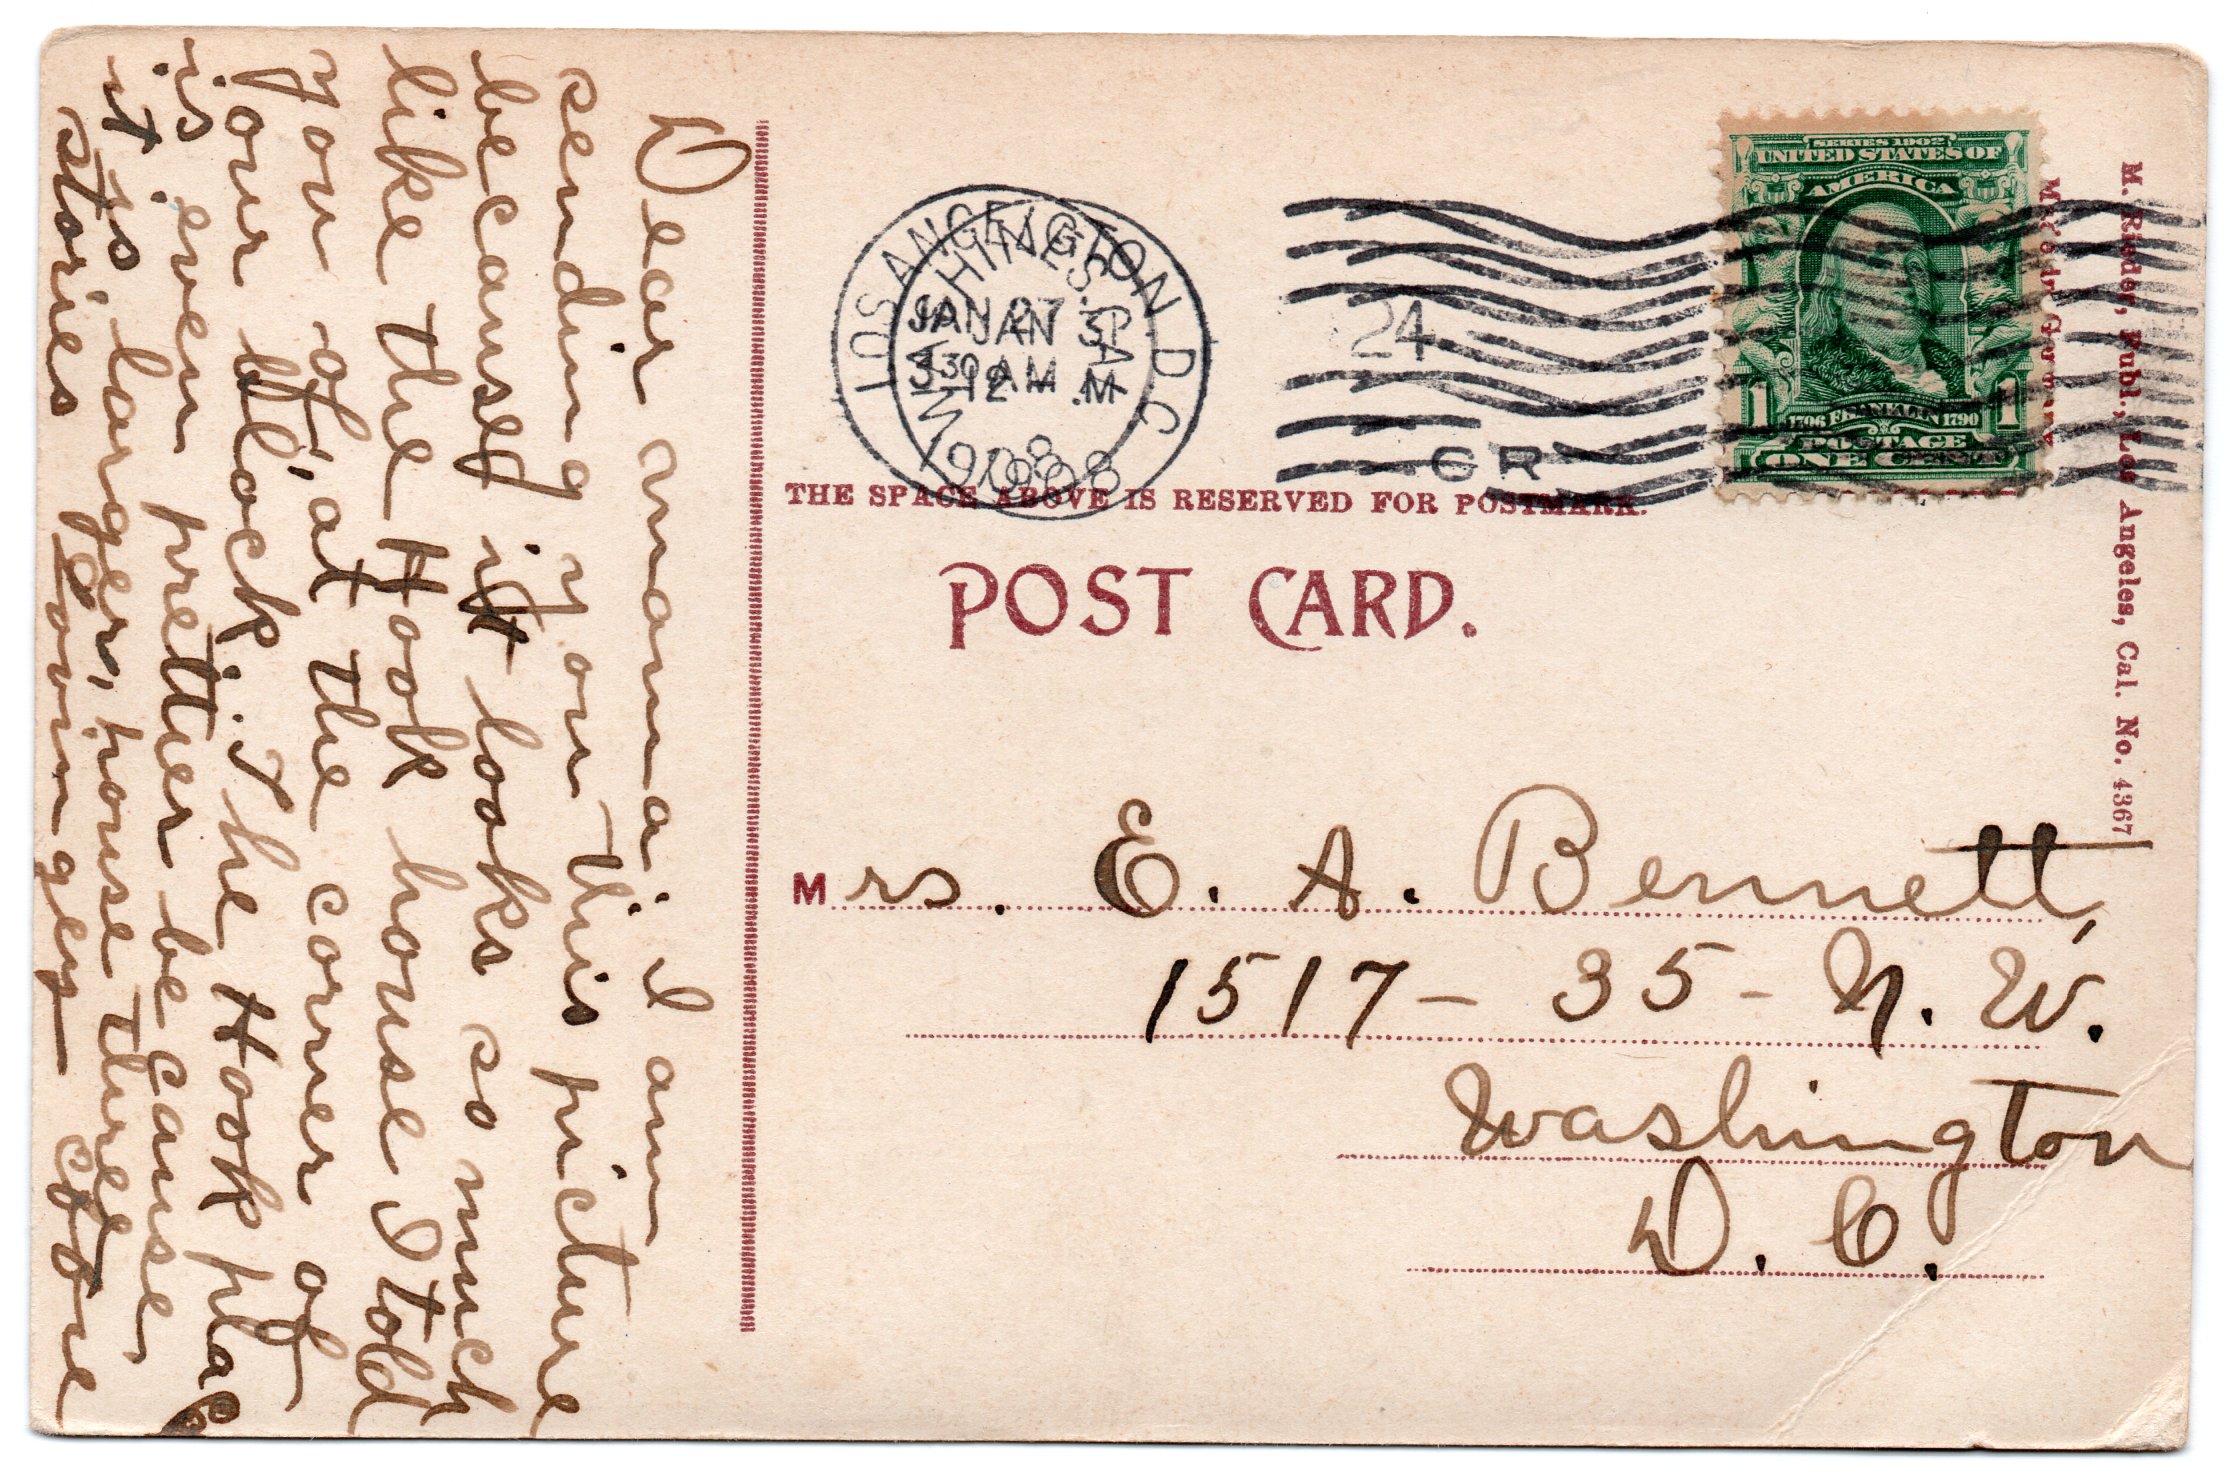 Dear mama'. I am
sending you this picture
because it looks so much
like the Hook house I told
you of, at the corner of
your block. The Hook place
is even prettier because
it is larger, house three
stories Lovingly Core
LOS ANGELES CAL
JAN 27
3 30 AM
1908
WASHINGTON D.C.
JAN 31
12 M
1908
24
GR
SERIES 1902
UNITED STATES OF
AMERICA
1 1
1706 FRANKLIN 1790
POSTAGE
ONE CENT
THE SPACE ABOVE IS RESERVED FOR POSTMARK.
POST CARD.
Mrs. E. A. Bennett,
1517 - 35 - N. W.
Washington
D. C.
M. Rieder, Publ., Los Angeles, Cal. No. 4367
Made in Germany